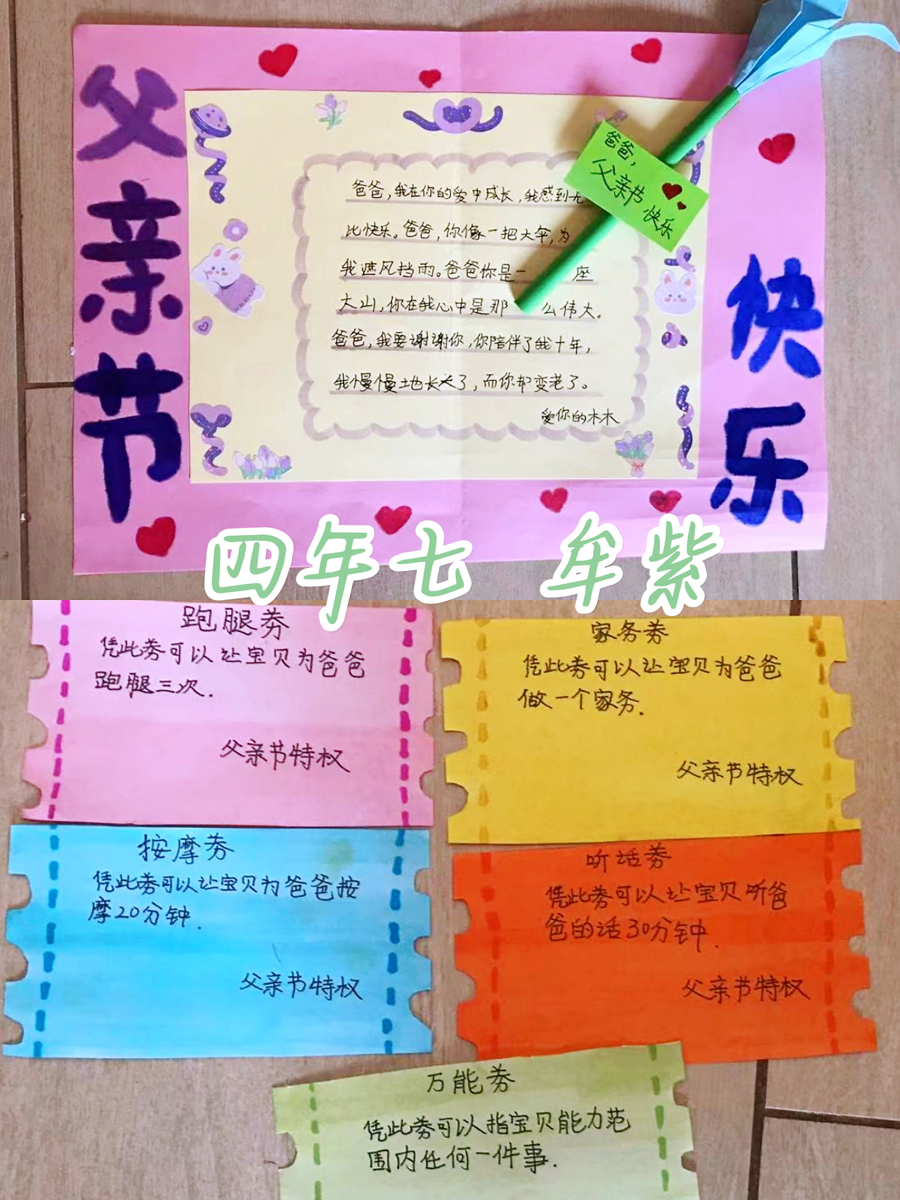 父亲节
快乐
爸爸，
父亲节
快乐
爸爸，我在你的爱中成长，我感到无
比快乐。爸爸，你像一把大伞，为
我遮风挡雨。爸爸你是一 座
大山，你在我心中是那 么伟大。
爸爸，我要谢谢你，你陪伴了我十年，
我慢慢地长大了，而你却变老了。
爱你的木木
四年七 牟紫
跑腿券
凭此券可以让宝贝为爸爸
跑腿三次.
父亲节特权
家务券
凭此券可以让宝贝为爸爸
做一个家务.
父亲节特权
按摩券
凭此券可以让宝贝为爸爸按
摩20分钟.
父亲节特权
听话券
凭此券可以让宝贝听爸
爸的话30分钟.
父亲节特权
万能券
凭此券可以指宝贝能力范
围内任何一件事.